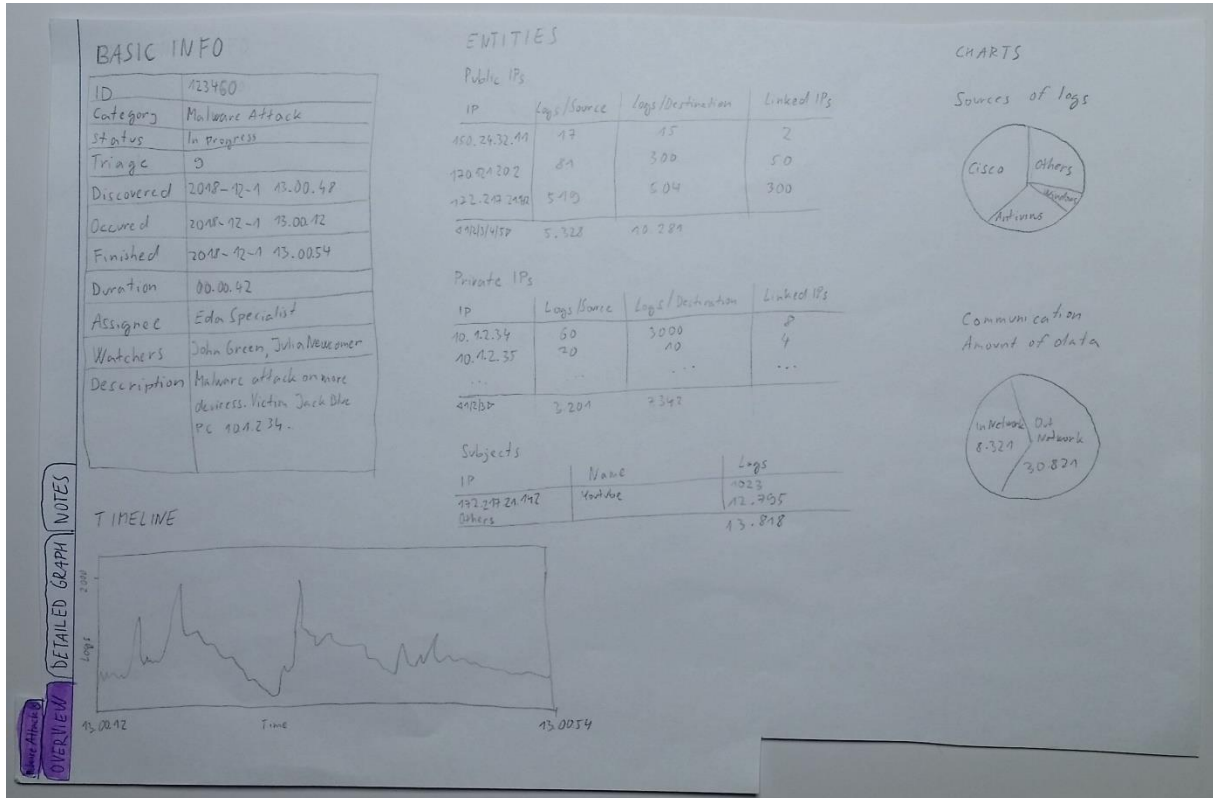 BASIC INFO
ID 123460
Category Malware Attack
Status In Progress
Triage 9
Discovered 2018-12-1 13.00.48
Occured 2018-12-1 13.00.12
Finished 2018-12-1 13.00.54
Duration 00.00.42
Assignee Eda Specialist
Watchers John Green, Julia Newcomer
Description Malware attack on more
devicess. Victim Jack Blue
PC 10.1.2.34.
TIMELINE
2000
Logs
13.00.12 Time 13.00.54
ENTITIES
Public IPs
IP Logs/Source Logs/Destination Linked IPs
150.24.32.11 17 15 2
81 300 50
519 504 300
◁1/2/3/4/5▷ 5.328 10.281
Private IPs
IP Logs/Source Logs/Destination Linked IPs
10.1.2.34 60 3000 8
10.1.2.35 20 10 4
... ... ... ...
◁1/2/3▷ 3.201 7342
Subjects
IP Name Logs
172.217.21.142 Youtube 1023
Others 12.795
13.818
CHARTS
Sources of logs
Cisco
Others
Windows
Antivirus
Communication
Amount of data
In Network
8.321
Out
Network
30.821
NOTES
DETAILED GRAPH
OVERVIEW